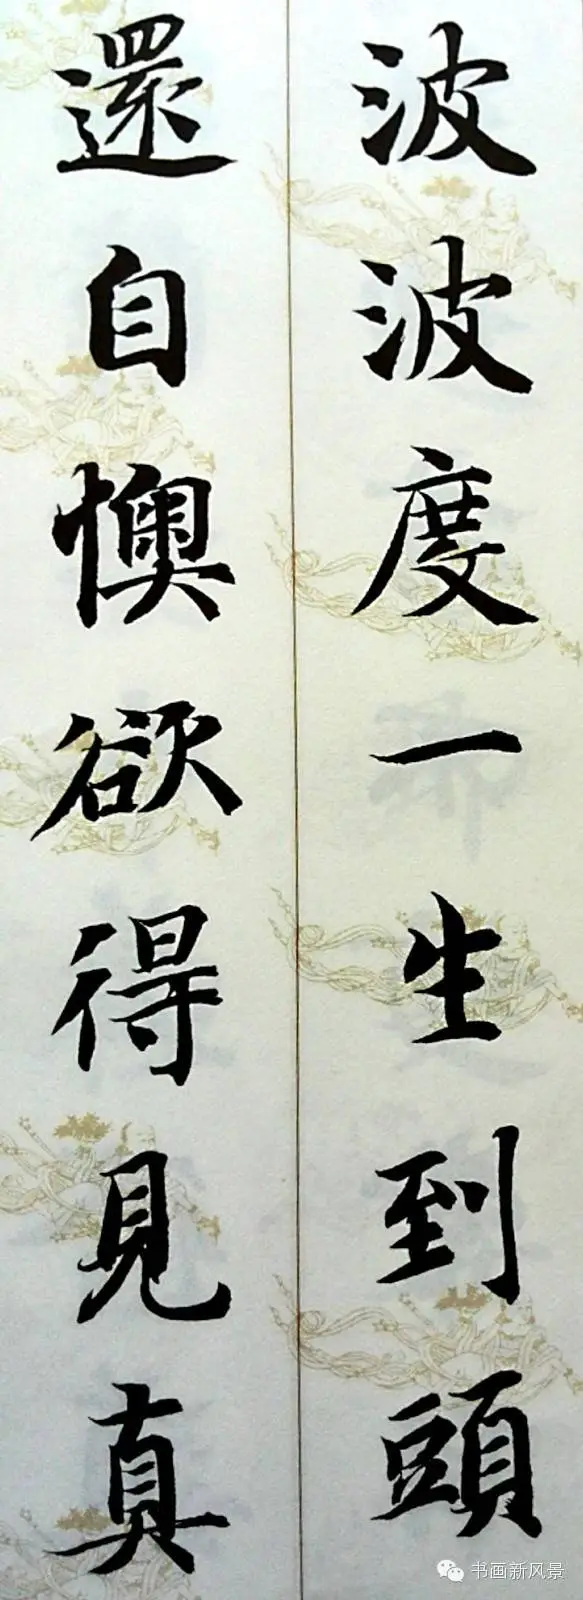 波波度一生到頭
還自懊欲得見真
书画新风景